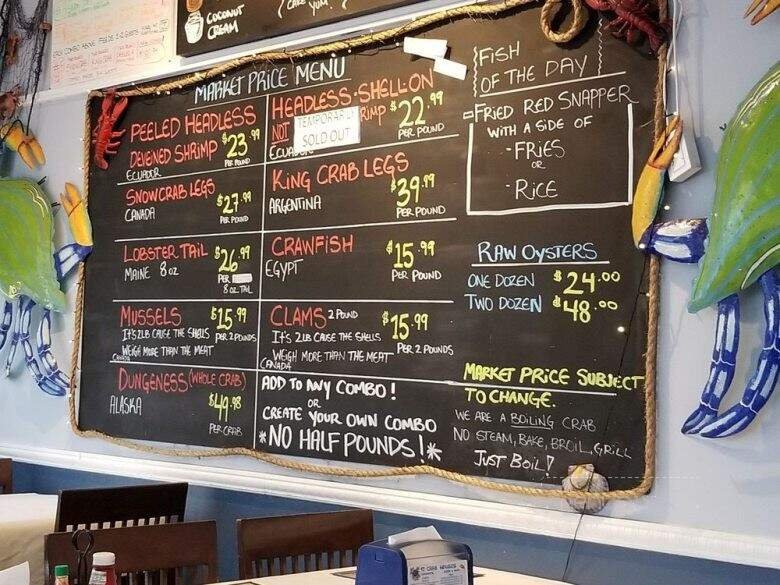 COCONUT
CREAM
CAKE
YUM
MARKET PRICE MENU
PEELED HEADLESS
DEVENED SHRIMP $23.99
ECUADOR PER POUND
HEADLESS·SHELLON
NOT RIMP $22.99
TEMPORAR
SOLD OUT
ECUADO PER POUND
SNOWCRAB LEGS
CANADA $27.99
PER POUND
KING CRAB LEGS
ARGENTINA $39.99
PER POUND
LOBSTER TAIL $26.99
MAINE 8 OZ
PER
8 OZ TAIL
CRAWFISH $15.99
EGYPT PER POUND
MUSSELS $15.99
IT'S 2LB CAUSE THE SHELLS PER 2 POUNDS
WEIGH MORE THAN THE MEAT
CANADA
CLAMS 2 POUND $15.99
IT'S 2LB CAUSE THE SHELLS
WEIGH MORE THAN THE MEAT PER 2 POUNDS
CANADA
DUNGENESS (WHOLE CRAB)
ALASKA $49.98
PER CRAB
ADD TO ANY COMBO!
OR
CREATE YOUR OWN COMBO
*NO HALF POUNDS!*
FISH
OF THE DAY
-FRIED RED SNAPPER
WITH A SIDE OF
-FRIES
OR
-RICE
RAW OYSTERS
ONE DOZEN $24.00
TWO DOZEN $48.00
MARKET PRICE SUBJECT
TO CHANGE.
WE ARE A BOILING CRAB
NO STEAM, BAKE, BROIL, GRILL
JUST BOIL!